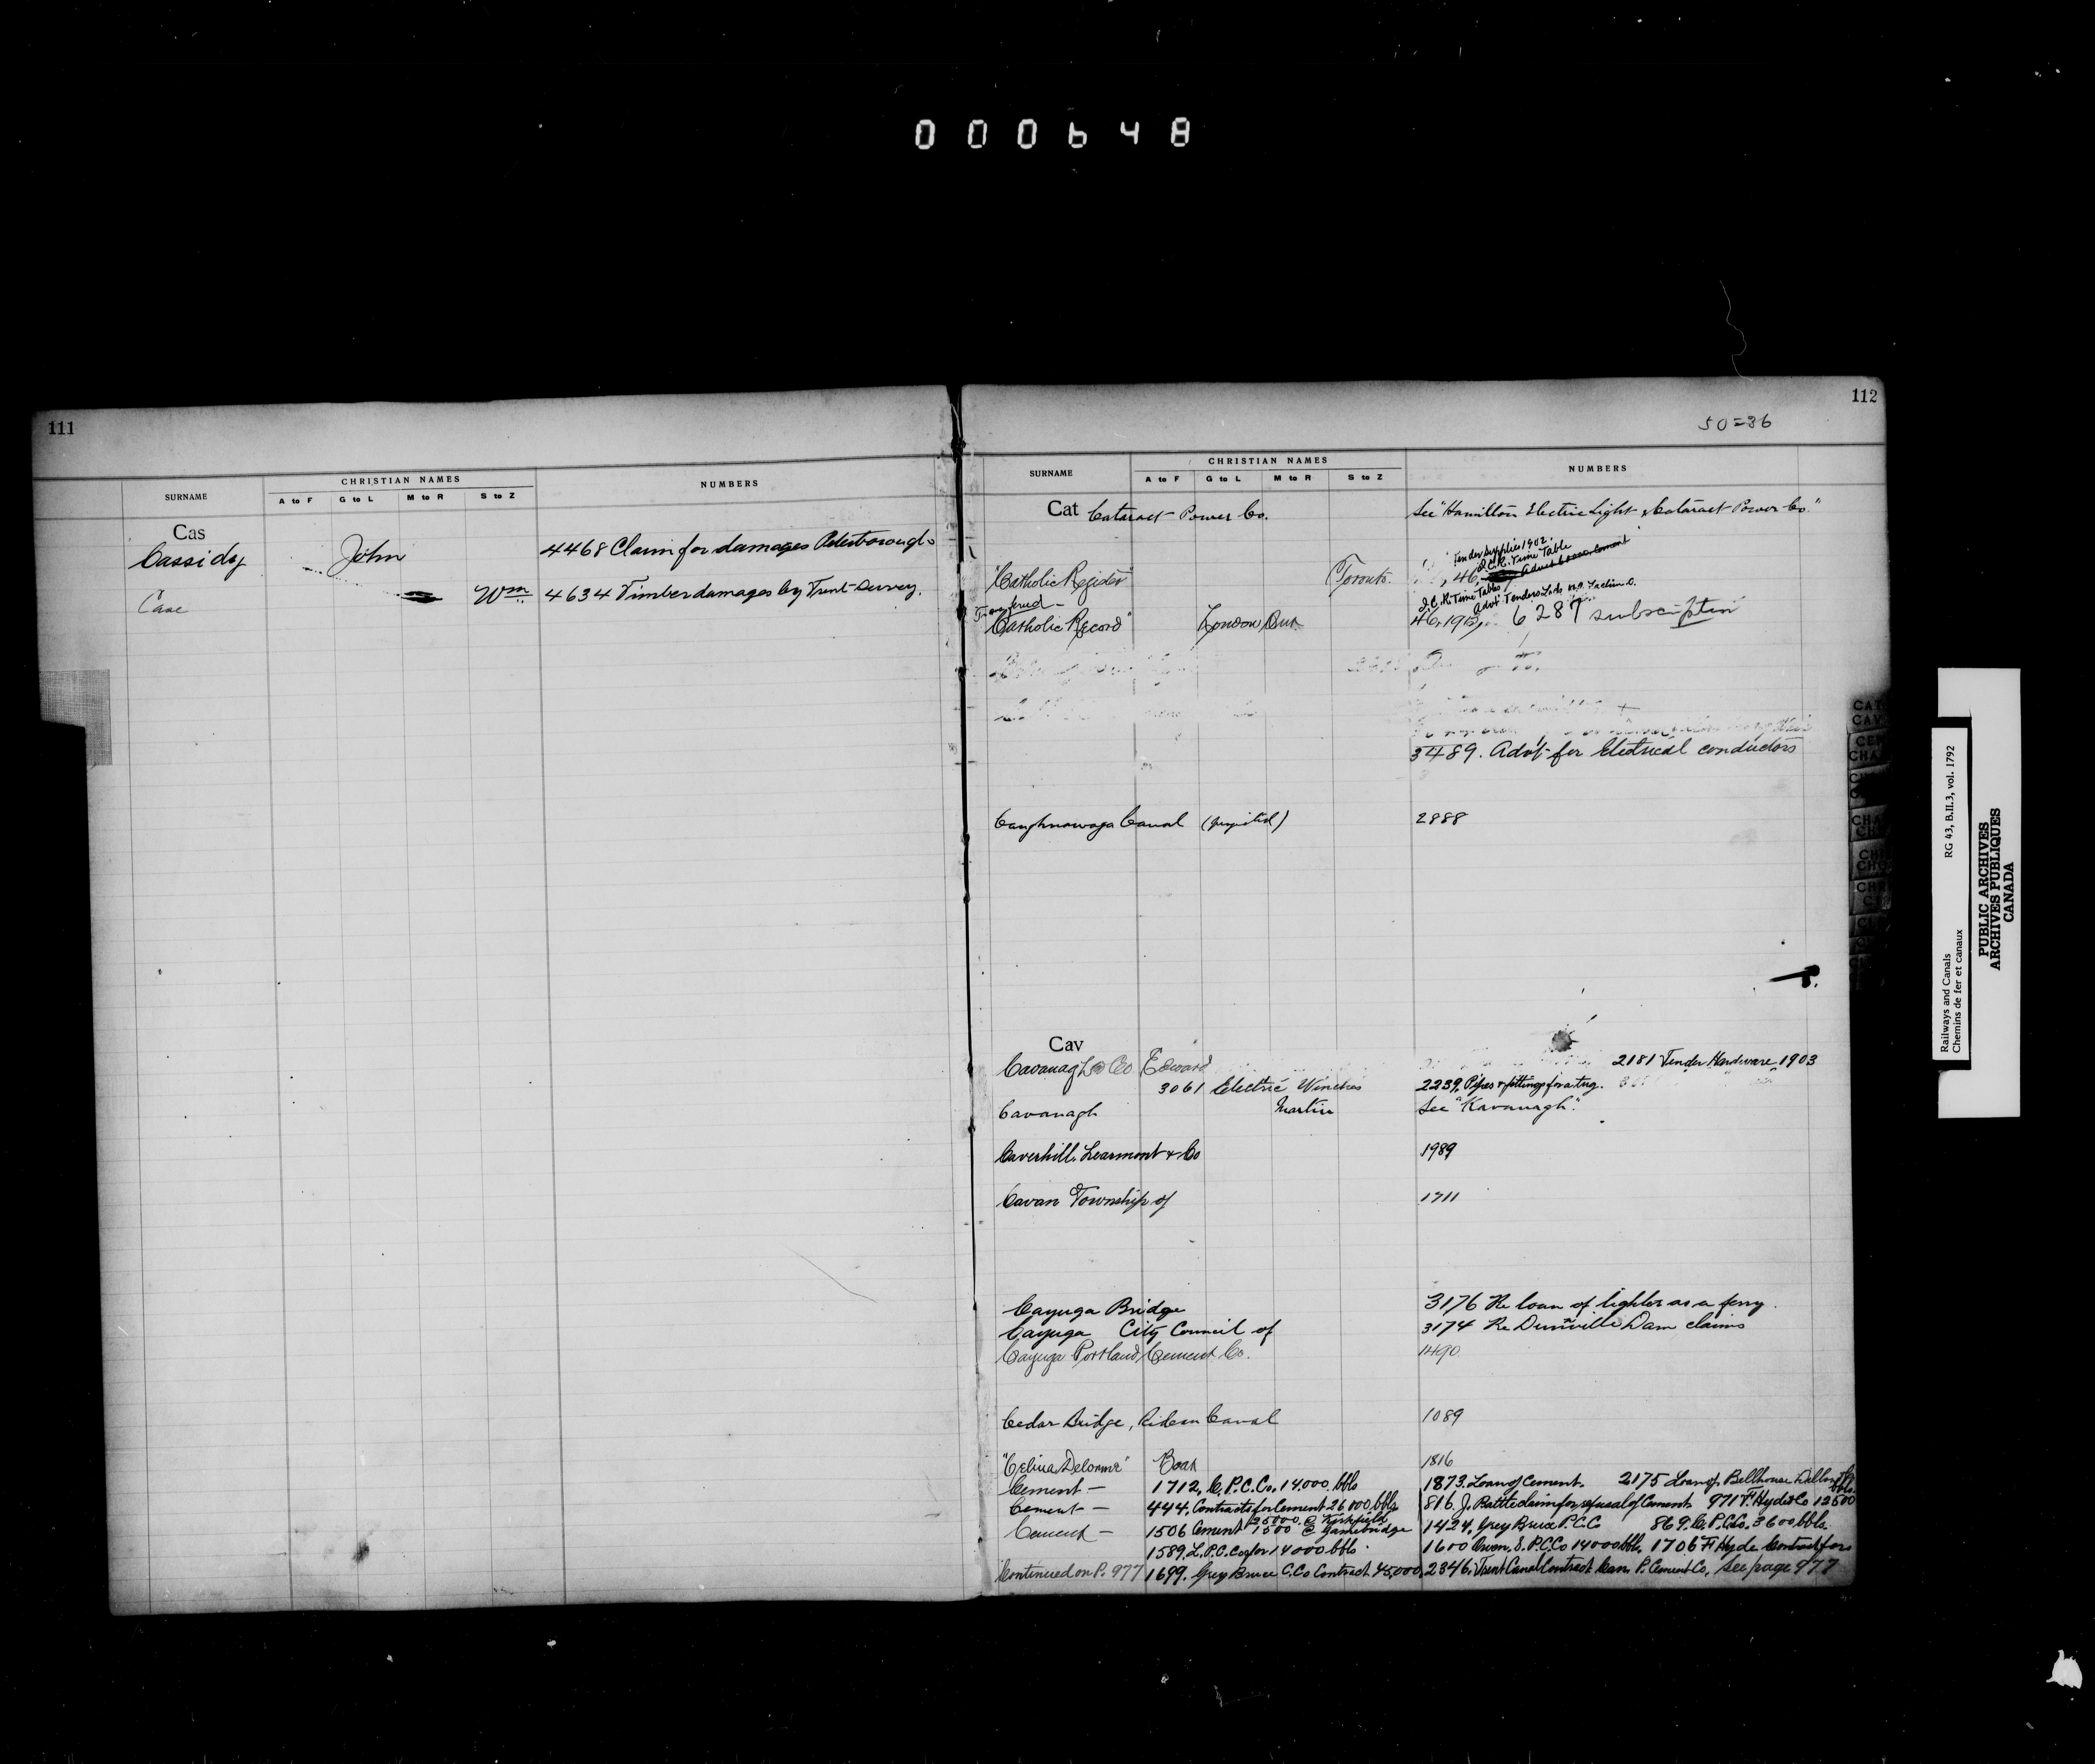 000648
111
SURNAME
CHRISTIAN NAMES
A to F G to L M to R S to Z
NUMBERS
Cas
Cassidy John 4468 Claim for damages Peterborough
Case Wm 4634 Timber damages by Trent Survey.
112
50=36
SURNAME
CHRISTIAN NAMES
A to F G to L M to R S to Z
NUMBERS
Cat Cataract Power Co. See "Hamilton Electric Light & Cataract Power Co."
Tender Supplies 1902.
I.C.R. Time Table
"Catholic Register" Toronto. 46, Advt
I.C.R. Time Tables
Advt Tenders
"Catholic Record" London Ont 46, 6287 subscription
3489. Advt for Electrical conductors
Caughnawaga Canal (projected) 2888
Cav
Cavanagh & Co Edward 2181 Tender Hardware 1903
3061 Electric Winches 2239, Pipes & fittings for a tug.
Cavanagh Martin See "Kavanagh".
Caverhill, Learmont & Co 1989
Cavan Township of 1711
Cayuga Bridge 3176 Re loan of lighter as a ferry
Cayuga City Council of 3174 Re Dunnville Dam claims
Cayuga Portland Cement Co. 1490
Cedar Bridge, Rideau Canal 1089
"Celina Delorme" Boat 1816
Cement — 1712, C.P.C.Co. 14000 bbls 1873. Loan of Cement. 2175 Loan of Bellhouse Dillon
Cement — 444, Contracts for Cement 26000 bbls 816. J. Battle claim for refusal of Cement 971 F. Hyde & Co 12500 bbls.
Cement — 1506 Cement 25000 @ Kirkfield 1500 @ Gamebridge 1424, Grey Bruce P.C.C 869. C.P.C.Co. 3600 bbls.
1589. L.P.C.Co for 14000 bbls 1600 Owen S. P.C.Co 14000 bbls, 1706 F Hyde Contract for
Continued on P. 977 1699. Grey Bruce C.Co Contract 45,000 2346, Trent Canal Contract Can. P. Cement Co, See page 977
CAT
CAV
CEN
CHA
Railways and Canals RG 43, B.II.3, vol. 1792
Chemins de fer et canaux
PUBLIC ARCHIVES
ARCHIVES PUBLIQUES
CANADA